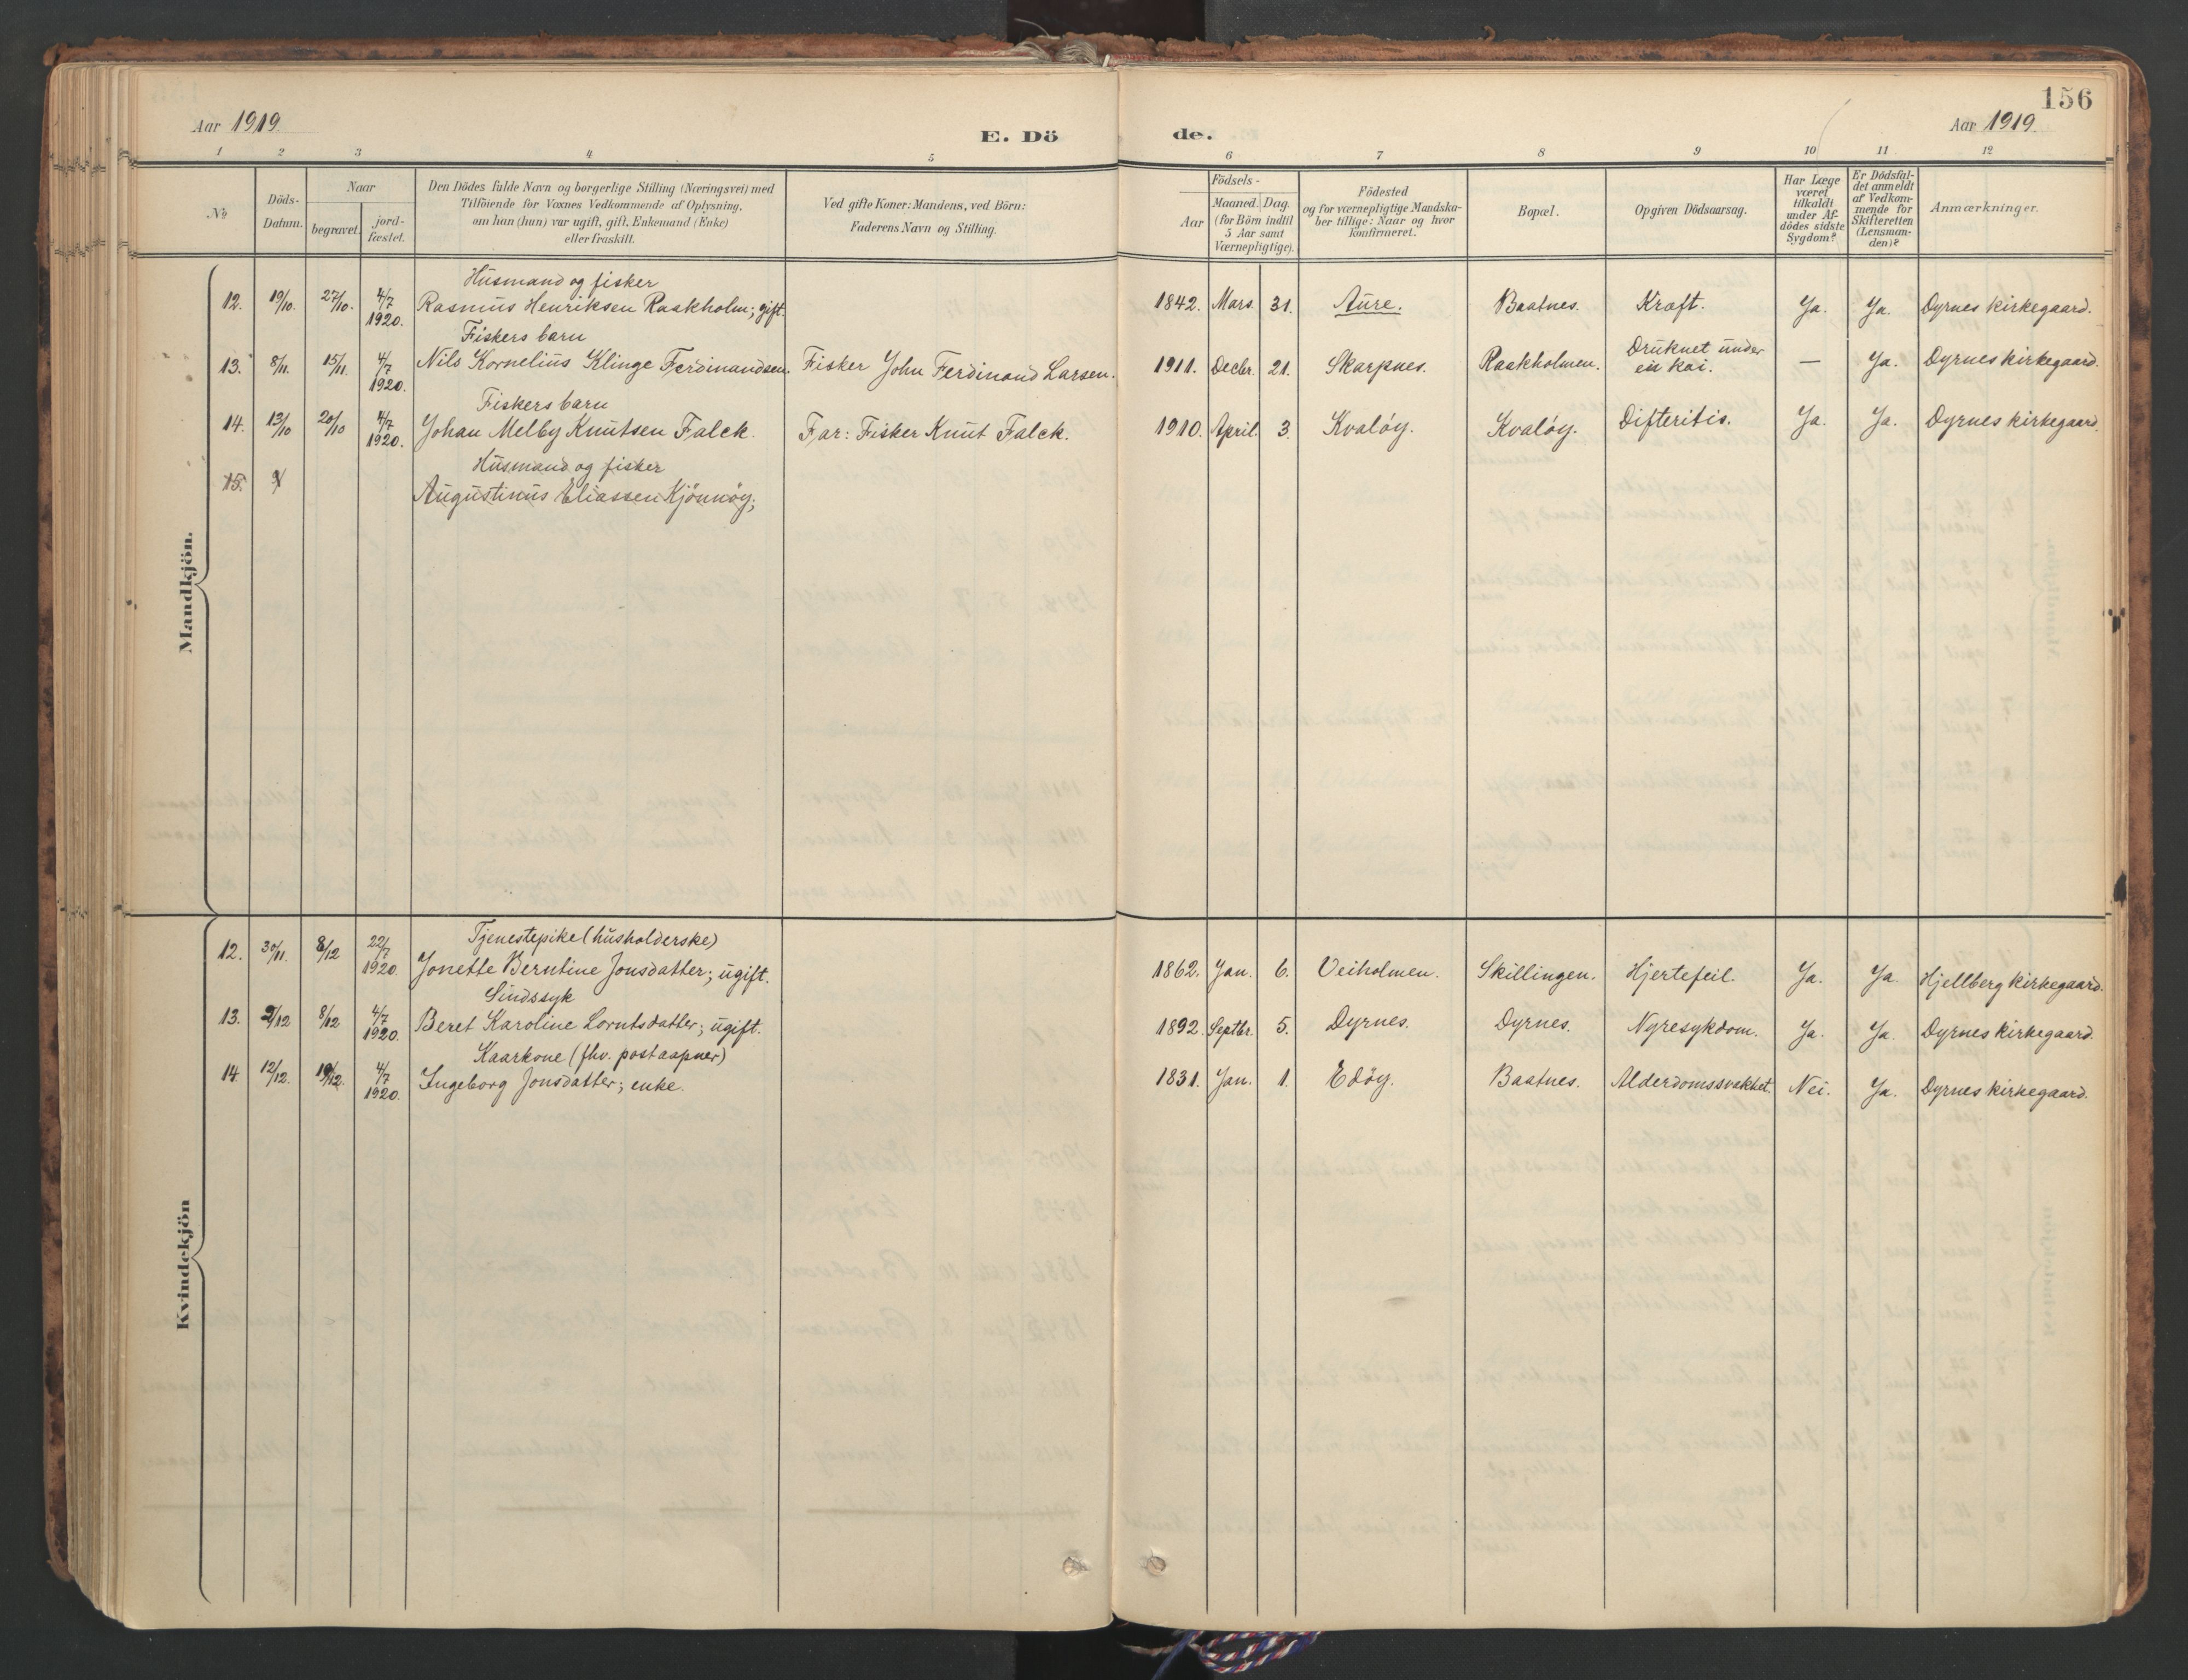 156
Aar 1919.
E. Dö
de.
Aar 1919.
1 2 3 4 5 6 7 8 9 10 11 12
No
Döds-
Datum.
Naar
begravet.
jord-
fæstet.
Den Dödes fulde Navn og borgerlige Stilling (Næringsvei) med
Tilföiende for Voxnes Vedkommende af Oplysning,
om han (hun) var ugift, gift, Enkemand (Enke)
eller fraskilt.
Ved gifte Koner: Mandens, ved Börn:
Faderens Navn og Stilling.
Födsels-
Aar
Maaned. Dag.
(for Börn indtil
5 Aar samt
Værnepligtige).
Födested
og for værnepligtige Mandska-
ber tillige: Naar og hvor
konfirmeret.
Bopæl.
Opgiven Dödsaarsag.
Har Læge
været
tilkaldt
under Af-
dödes sidste
Sygdom?
Er Dödsfal-
det anmeldt
af Vedkom-
mende for
Skifteretten
(Lensman-
den)?
Anmærkninger.
Mandkjön.
Husmand og fisker
12. 19/10. 27/10. 4/7 1920. Rasmus Henriksen Raakholm; gift. 1842. Mars. 31. Aure. Baatnes. Kræft. Ja. Ja. Dyrnes kirkegaard.
Fiskers barn
13. 8/11. 15/11. 4/7 1920. Nils Kornelius Klinge Ferdinandsen. Fisker John Ferdinand Larsen. 1911. Decbr. 21. Skarpnes. Raakholmen. Druknet under en kai. — Ja. Dyrnes kirkegaard.
Fiskers barn
14. 13/10 20/10 4/7 1920. Johan Melby Knutsen Falck. Far: Fisker Knut Falck. 1910. April. 3. Kvalöy. Kvalöy. Difteritis. Ja. Ja. Dyrnes kirkegaard.
Husmand og fisker
15. Augustinus Eliassen Kjönnöy;
Kvindekjön
Tjenestepike (husholderske)
12. 30/11. 8/12 22/7 1920. Jonette Berntine Jonsdatter; ugift. 1862. Jan. 6. Veiholmen. Skillingen. Hjertefeil. Ja. Ja. Hjellberg kirkegaard.
Sindssyk
13. 2/12 8/12 4/7 1920. Beret Karoline Lorntsdatter; ugift. 1892. Septbr. 5. Dyrnes. Dyrnes. Nyresykdom. Ja. Ja. Dyrnes kirkegaard.
Kaarkone (fhv. postaapner)
14. 12/12. 19/12. 4/7 1920. Ingeborg Jonsdatter; enke. 1831. Jan. 1. Edöy. Baatnes. Alderdomssvakhet. Nei. Ja. Dyrnes kirkegaard.